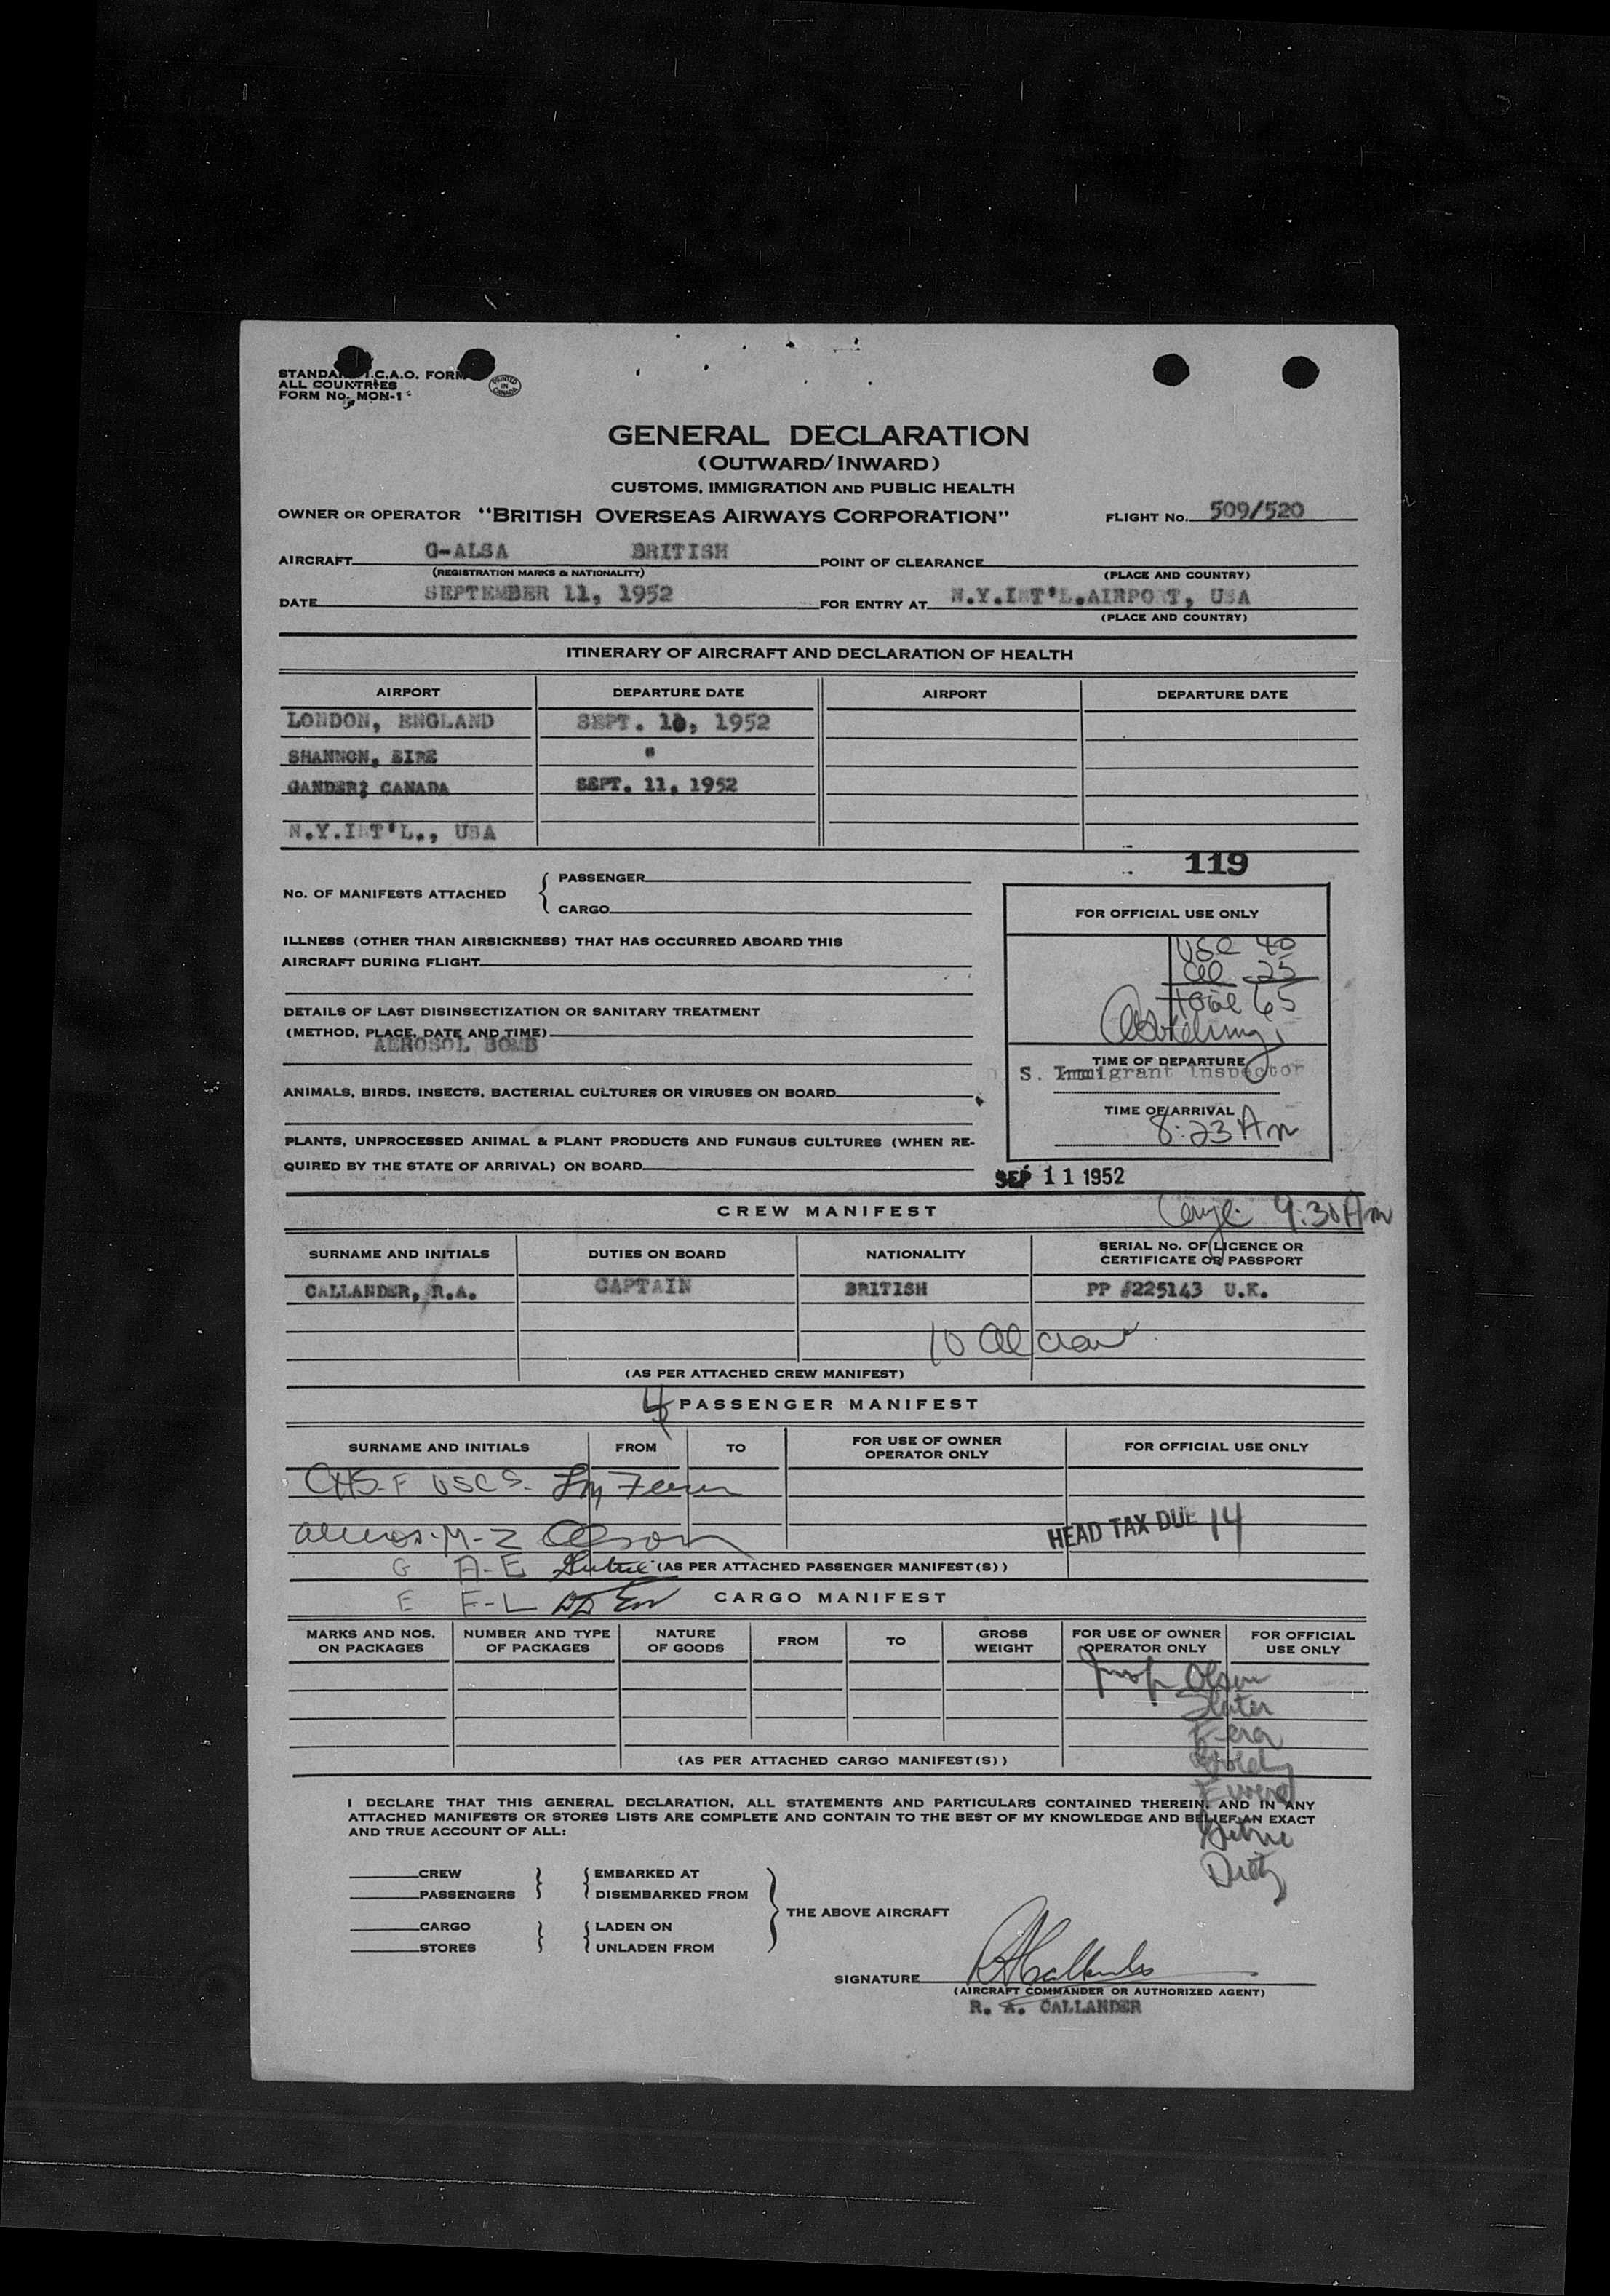 STANDARD I.C.A.O. FORM
ALL COUNTRIES
FORM No. MON-1
PRINTED IN CANADA
GENERAL DECLARATION
(OUTWARD/INWARD)
CUSTOMS, IMMIGRATION AND PUBLIC HEALTH
OWNER OR OPERATOR "BRITISH OVERSEAS AIRWAYS CORPORATION" FLIGHT No. 509/520
AIRCRAFT G-ALSA BRITISH POINT OF CLEARANCE
(REGISTRATION MARKS & NATIONALITY) (PLACE AND COUNTRY)
DATE SEPTEMBER 11, 1952 FOR ENTRY AT N.Y.INT'L.AIRPORT, USA
(PLACE AND COUNTRY)
ITINERARY OF AIRCRAFT AND DECLARATION OF HEALTH
AIRPORT DEPARTURE DATE AIRPORT DEPARTURE DATE
LONDON, ENGLAND SEPT. 10, 1952
SHANNON, EIRE "
GANDER, CANADA SEPT. 11, 1952
N.Y.INT'L., USA
119
No. OF MANIFESTS ATTACHED { PASSENGER
CARGO
FOR OFFICIAL USE ONLY
USC 40
al 25
total 65
ILLNESS (OTHER THAN AIRSICKNESS) THAT HAS OCCURRED ABOARD THIS
AIRCRAFT DURING FLIGHT
DETAILS OF LAST DISINSECTIZATION OR SANITARY TREATMENT
(METHOD, PLACE, DATE AND TIME)
AEROSOL BOMB
TIME OF DEPARTURE
S. Immigrant Inspector
ANIMALS, BIRDS, INSECTS, BACTERIAL CULTURES OR VIRUSES ON BOARD
TIME OF ARRIVAL
8:23 Am
PLANTS, UNPROCESSED ANIMAL & PLANT PRODUCTS AND FUNGUS CULTURES (WHEN RE-
QUIRED BY THE STATE OF ARRIVAL) ON BOARD
SEP 11 1952
CREW MANIFEST
9:30 Am
SURNAME AND INITIALS DUTIES ON BOARD NATIONALITY SERIAL No. OF LICENCE OR CERTIFICATE OR PASSPORT
CALLANDER, R.A. CAPTAIN BRITISH PP #225143 U.K.
10 al crew
(AS PER ATTACHED CREW MANIFEST)
4 PASSENGER MANIFEST
SURNAME AND INITIALS FROM TO FOR USE OF OWNER OPERATOR ONLY FOR OFFICIAL USE ONLY
USCS
HEAD TAX DUE 14
M-Z Olson
G A-E (AS PER ATTACHED PASSENGER MANIFEST(S))
E F-L CARGO MANIFEST
MARKS AND NOS. ON PACKAGES NUMBER AND TYPE OF PACKAGES NATURE OF GOODS FROM TO GROSS WEIGHT FOR USE OF OWNER OPERATOR ONLY FOR OFFICIAL USE ONLY
Insp Olsen
Slater
(AS PER ATTACHED CARGO MANIFEST(S))
I DECLARE THAT THIS GENERAL DECLARATION, ALL STATEMENTS AND PARTICULARS CONTAINED THEREIN, AND IN ANY
ATTACHED MANIFESTS OR STORES LISTS ARE COMPLETE AND CONTAIN TO THE BEST OF MY KNOWLEDGE AND BELIEF, AN EXACT
AND TRUE ACCOUNT OF ALL:
CREW EMBARKED AT
PASSENGERS DISEMBARKED FROM
THE ABOVE AIRCRAFT
CARGO LADEN ON
STORES UNLADEN FROM
SIGNATURE RACallander
(AIRCRAFT COMMANDER OR AUTHORIZED AGENT)
R. A. CALLANDER